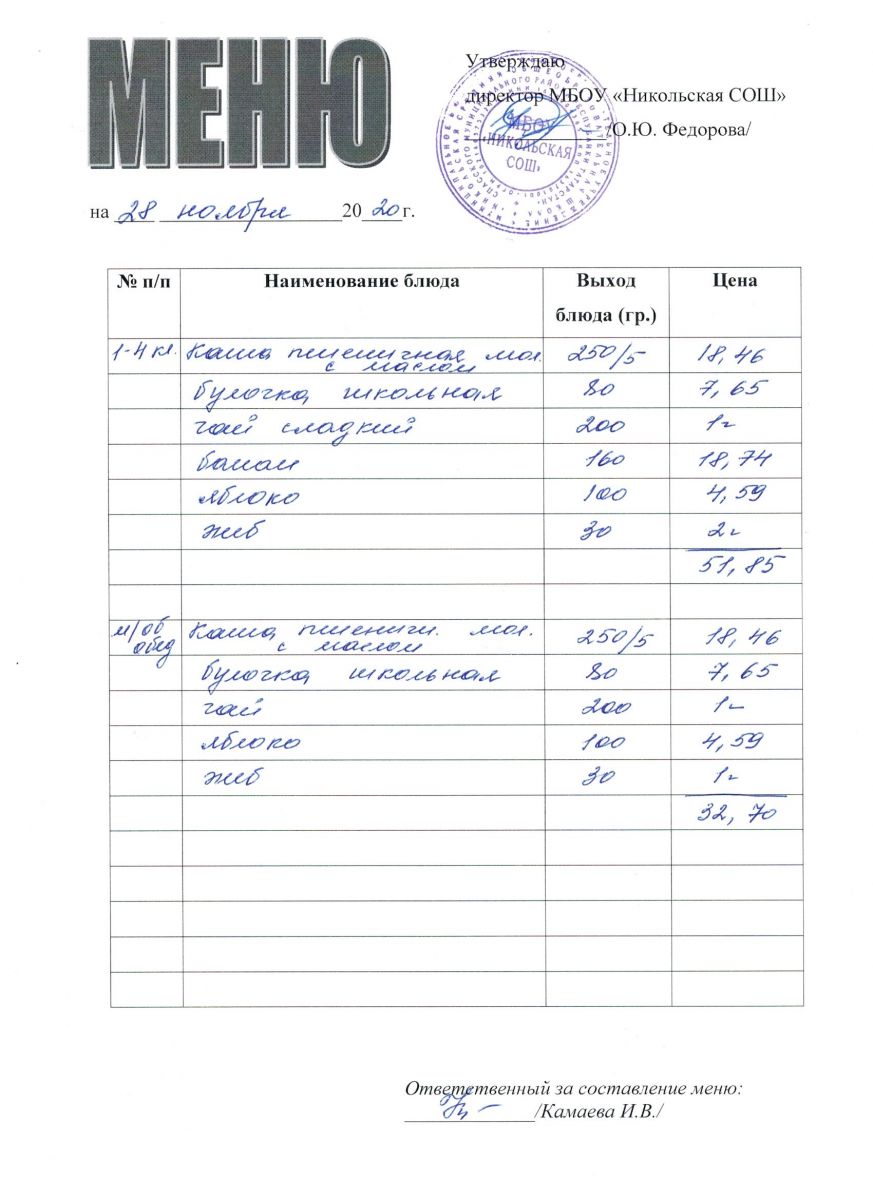 МЕНЮ
Утверждаю
директор МБОУ «Никольская СОШ»
/О.Ю. Федорова/
МБОУ
«НИКОЛЬСКАЯ
СОШ»
на 28 ноября 2020 г.
№ п/п Наименование блюда Выход блюда (гр.) Цена
1-4 кл. Каша пшеничная мол. с маслом 250/5 18,46
булочка школьная 80 7,65
чай сладкий 200 1-
банан 160 18,74
яблоко 100 4,59
хлеб 30 2-
51,85
м/об обед Каша пшеничн. мол. с маслом 250/5 18,46
булочка школьная 80 7,65
чай 200 1-
яблоко 100 4,59
хлеб 30 1-
32,70
Ответственный за составление меню:
/Камаева И.В./